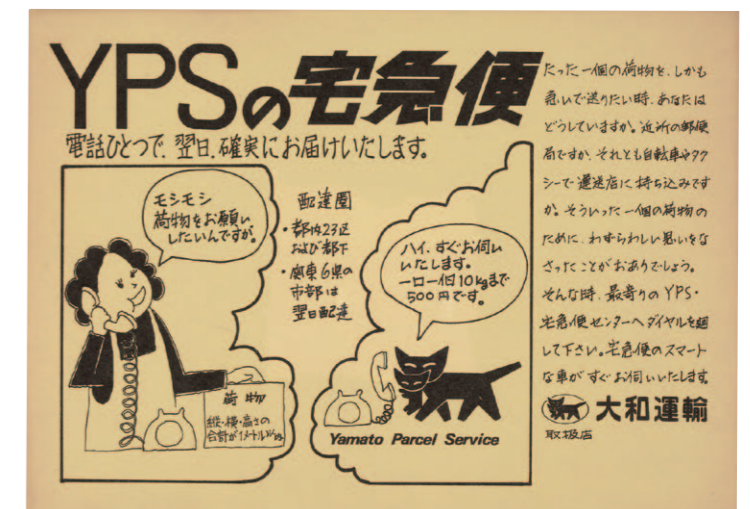 YPSの宅急便
電話ひとつで、翌日、確実にお届けいたします。
モシモシ
荷物をお願い
したいんですが。
配達圏
・都内23区
および都下
・関東6県の
市部は
翌日配達
ハイ、すぐお伺い
いたします。
一口一個10kgまで
500円です。
荷物
縦・横・高さの
合計が1メートル以内
Yamato Parcel Service
たった一個の荷物を、しかも
急いで送りたい時、あなたは
どうしていますか。近所の郵便
局ですか、それとも自転車やタク
シーで運送店に持ち込みです
か。そういった一個の荷物の
ために、わずらわしい思いをな
さったことがおありでしょう。
そんな時、最寄りのYPS・
宅急便センターへダイヤルを廻
して下さい。宅急便のスマート
な車がすぐお伺いいたします。
大和運輸
取扱店